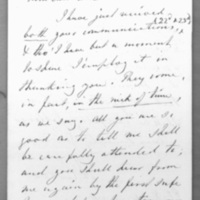 I have just received
both your communications,
& tho' I have but a moment
to spare I employ it in
thanking you. They come,
in part, in the nick of time,
as we say. All you are so
good as to tell me shall
be carefully attended to,
and you shall hear from
me again by the post